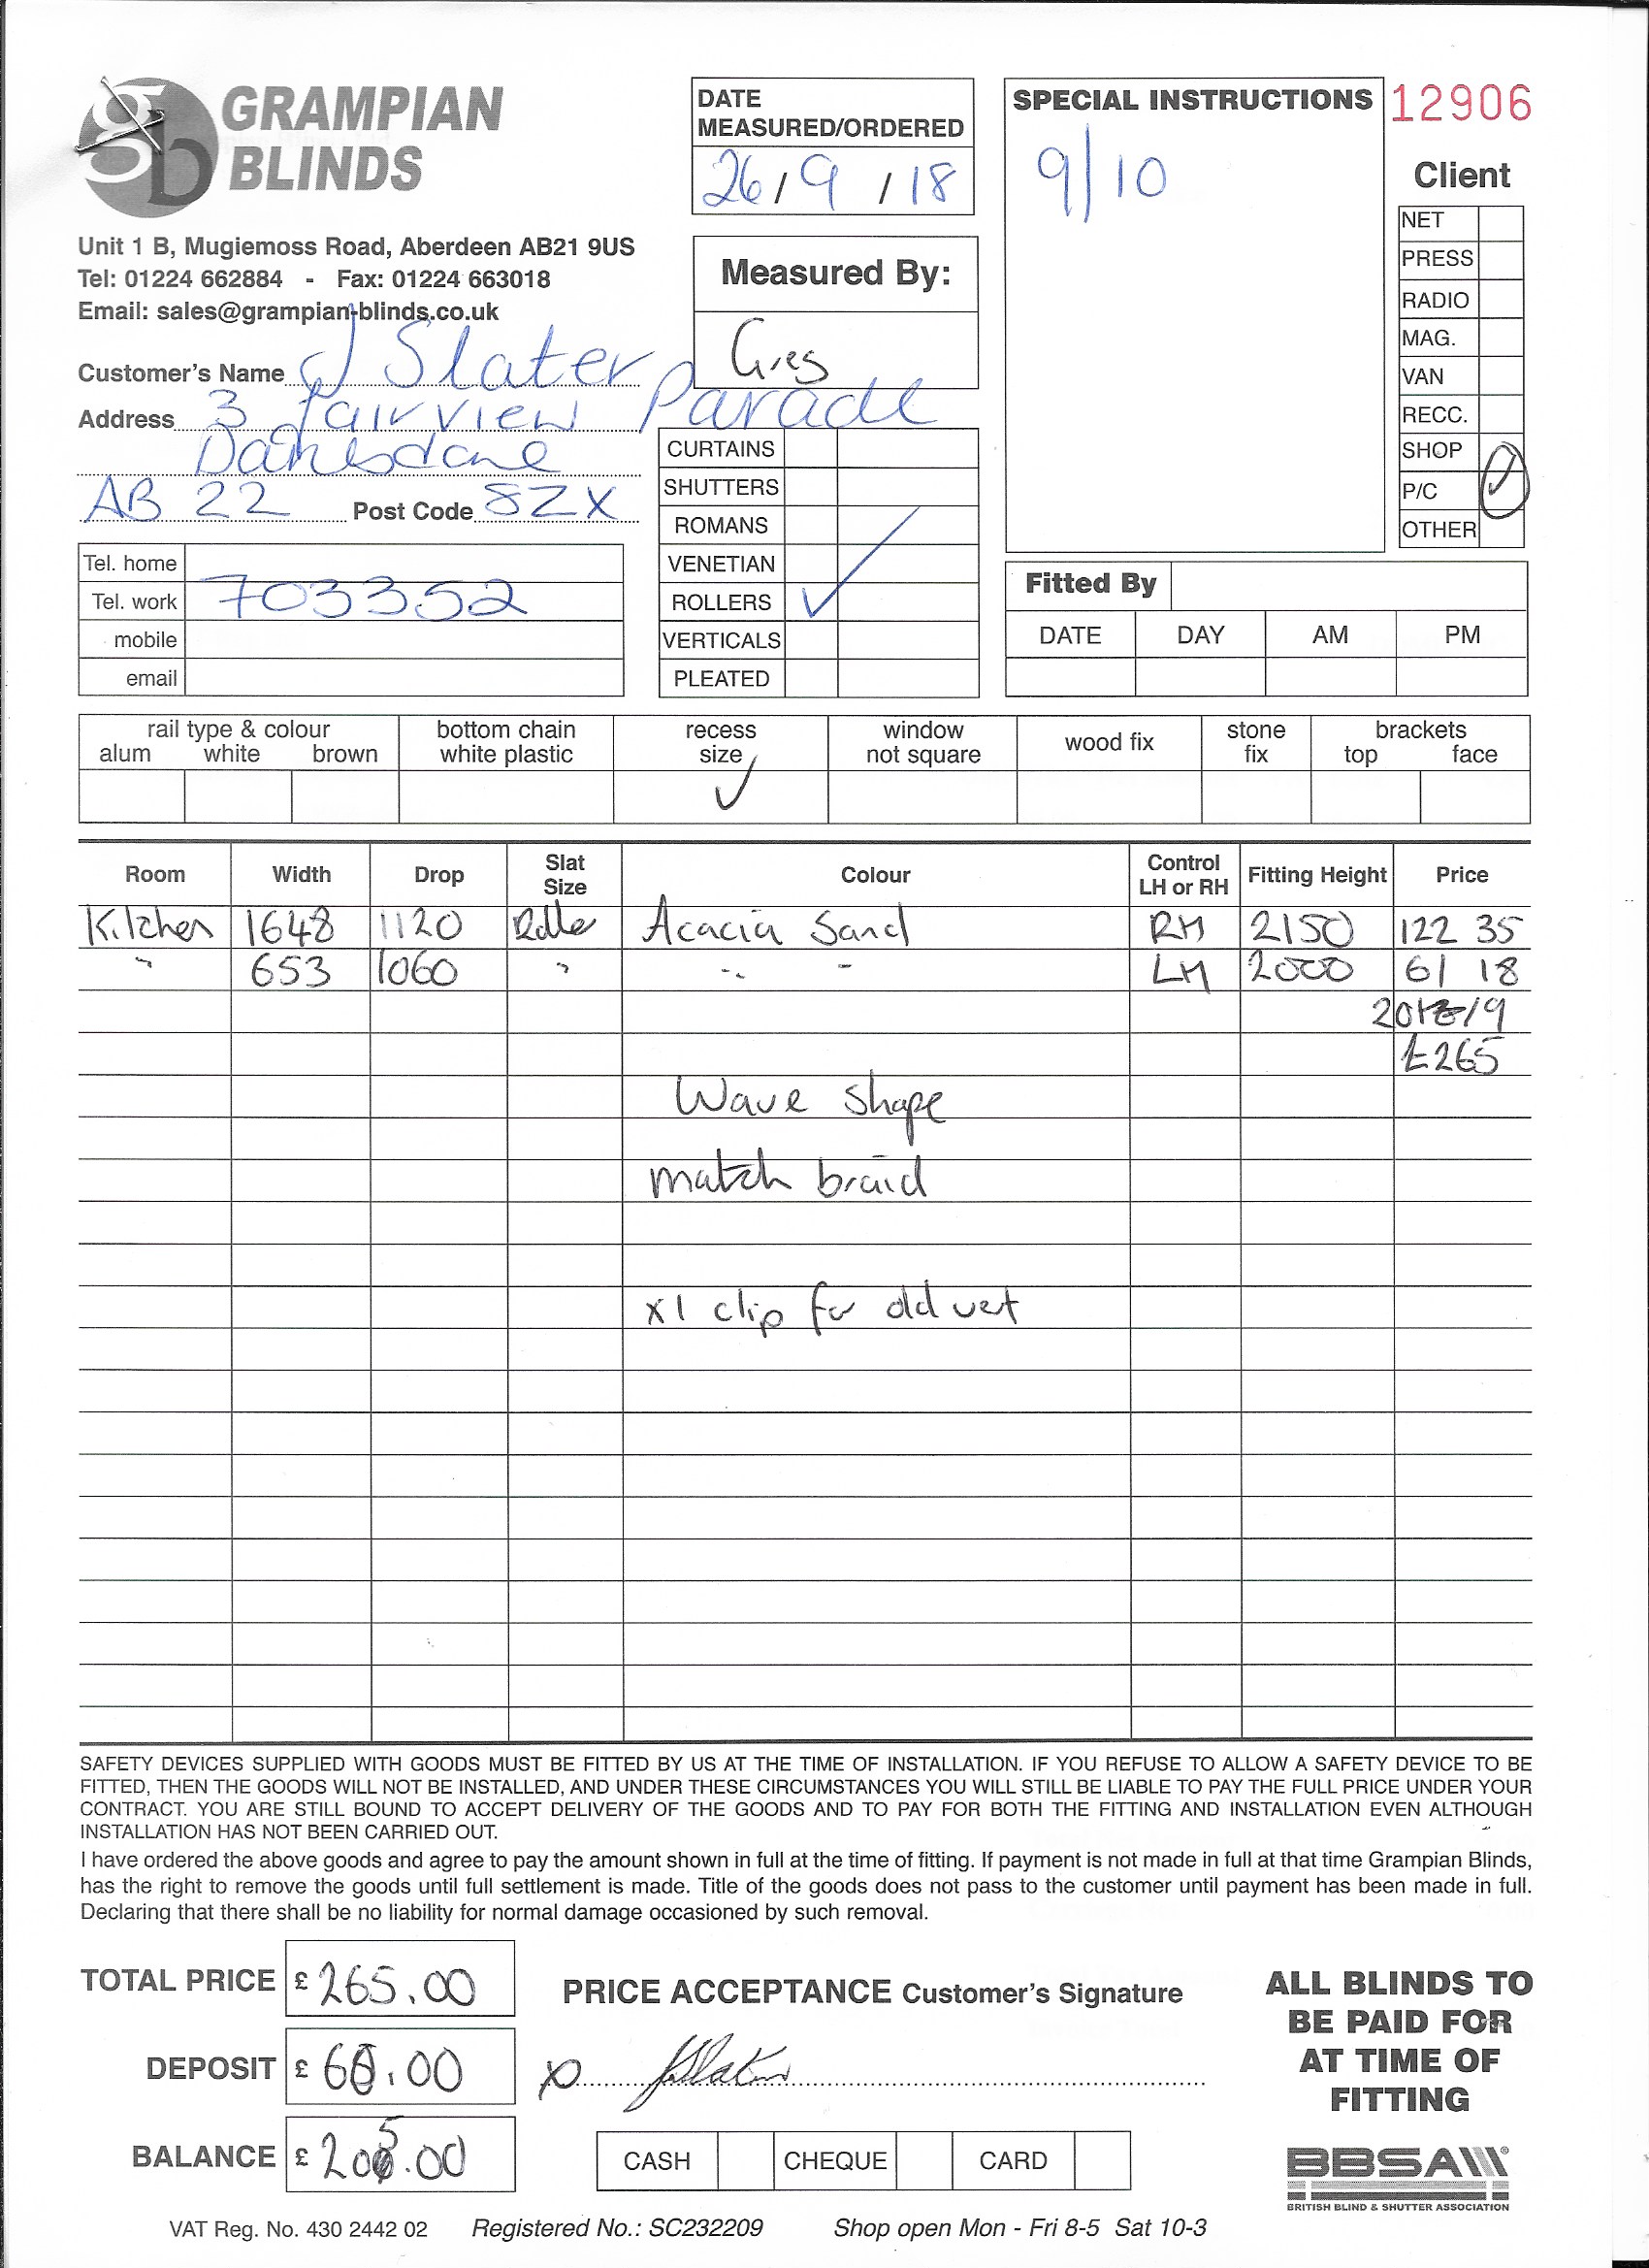 gb GRAMPIAN BLINDS
Unit 1 B, Mugiemoss Road, Aberdeen AB21 9US
Tel: 01224 662884 - Fax: 01224 663018
Email: sales@grampian-blinds.co.uk
DATE MEASURED/ORDERED
26/9/18
Measured By:
Greg
SPECIAL INSTRUCTIONS
9/10
12906
Client
NET
PRESS
RADIO
MAG.
VAN
RECC.
SHOP
P/C ✓
OTHER
Customer's Name J Slater
Address 3 Fairview Parade
AB 22 Post Code 8ZX
Tel. home
Tel. work 703352
mobile
email
CURTAINS
SHUTTERS
ROMANS
VENETIAN
ROLLERS ✓
VERTICALS
PLEATED
Fitted By
DATE DAY AM PM
rail type & colour bottom chain recess window wood fix stone brackets
alum white brown white plastic size not square fix top face
✓
Room Width Drop Slat Size Colour Control LH or RH Fitting Height Price
Kitchen 1648 1120 Roller Acacia Sand RH 2150 122 35
" 653 1060 " " " LH 2000 61 18
£265
Wave Shape
match braid
x1 clip for old vert
SAFETY DEVICES SUPPLIED WITH GOODS MUST BE FITTED BY US AT THE TIME OF INSTALLATION. IF YOU REFUSE TO ALLOW A SAFETY DEVICE TO BE
FITTED, THEN THE GOODS WILL NOT BE INSTALLED, AND UNDER THESE CIRCUMSTANCES YOU WILL STILL BE LIABLE TO PAY THE FULL PRICE UNDER YOUR
CONTRACT. YOU ARE STILL BOUND TO ACCEPT DELIVERY OF THE GOODS AND TO PAY FOR BOTH THE FITTING AND INSTALLATION EVEN ALTHOUGH
INSTALLATION HAS NOT BEEN CARRIED OUT.
I have ordered the above goods and agree to pay the amount shown in full at the time of fitting. If payment is not made in full at that time Grampian Blinds,
has the right to remove the goods until full settlement is made. Title of the goods does not pass to the customer until payment has been made in full.
Declaring that there shall be no liability for normal damage occasioned by such removal.
TOTAL PRICE £ 265.00
DEPOSIT £ 60.00
BALANCE £ 205.00
PRICE ACCEPTANCE Customer's Signature
x JSlater
CASH CHEQUE CARD
ALL BLINDS TO
BE PAID FOR
AT TIME OF
FITTING
BBSA
BRITISH BLIND & SHUTTER ASSOCIATION
VAT Reg. No. 430 2442 02 Registered No.: SC232209 Shop open Mon - Fri 8-5 Sat 10-3